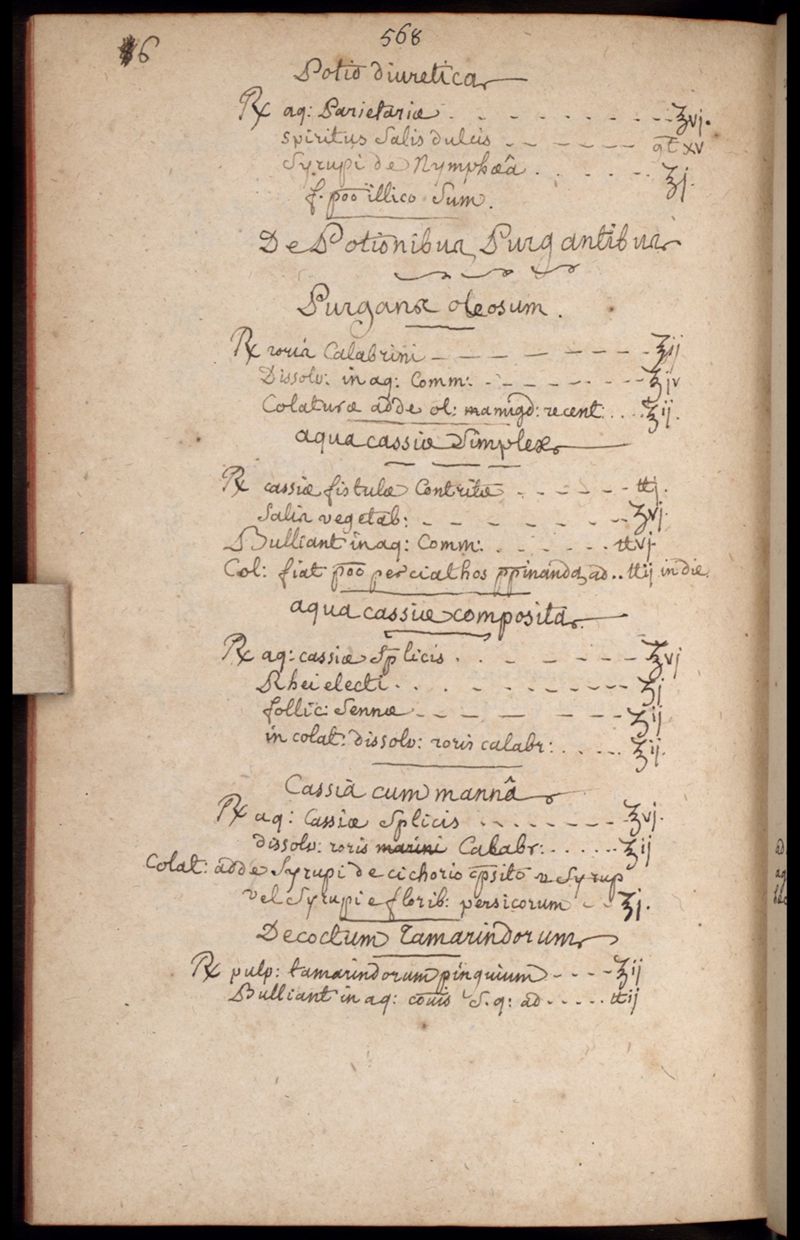 568
6
Potio diuretica
℞ aq: Parietariæ . - - - - - - - - ℥vj.
spiritus Salis dulcis - - - - - - gt xv
Syrupi de Nymphæâ . . - - - - ℥j.
f. poo illico Sum.
De Potionibus Purgantibus
Purgans oleosum.
℞ roris Calabrini - - - - - - - ℥ij
Dissolv: in aq: Comm: - - - - - - ℥jv
Colaturæ adde ol: mamigd: recent: . . . ℥ij.
aqua cassiæ Simplex
℞ cassiæ fistulæ Contritæ . - - - - - ℔j.
Salis vegetab: - - - - - - - ℥vj.
Bulliant in aq: Comm: . - - - - - ℔vj.
Col: fiat poo per ciathos ppinanda ad .. ℔ij in die.
aqua cassiæ composita
℞ aq: cassiæ Splicis . . - - - - - ℥vj
Rhei electi . . . - - - - - - - ʒj
follic: Sennæ - - - - - - - ʒij
in colat: dissolv: roris calabr: . . . . . ℥ij.
Cassia cum mannâ
℞ aq: Cassiæ Splicis - - - - - - - - ℥vj.
dissolv: roris Calabr: . . . . . . ℥ij
Colat: adde Syrupi de cichorio cpsito v Syrup
vel Syrupi e florib: persicorum - - ℥j.
Decoctum tamarindorum
℞ pulp: tamarindorum pinguium - - - - ℥ij
Bulliant in aq: couis S.q: ad - - - - - ℔ij